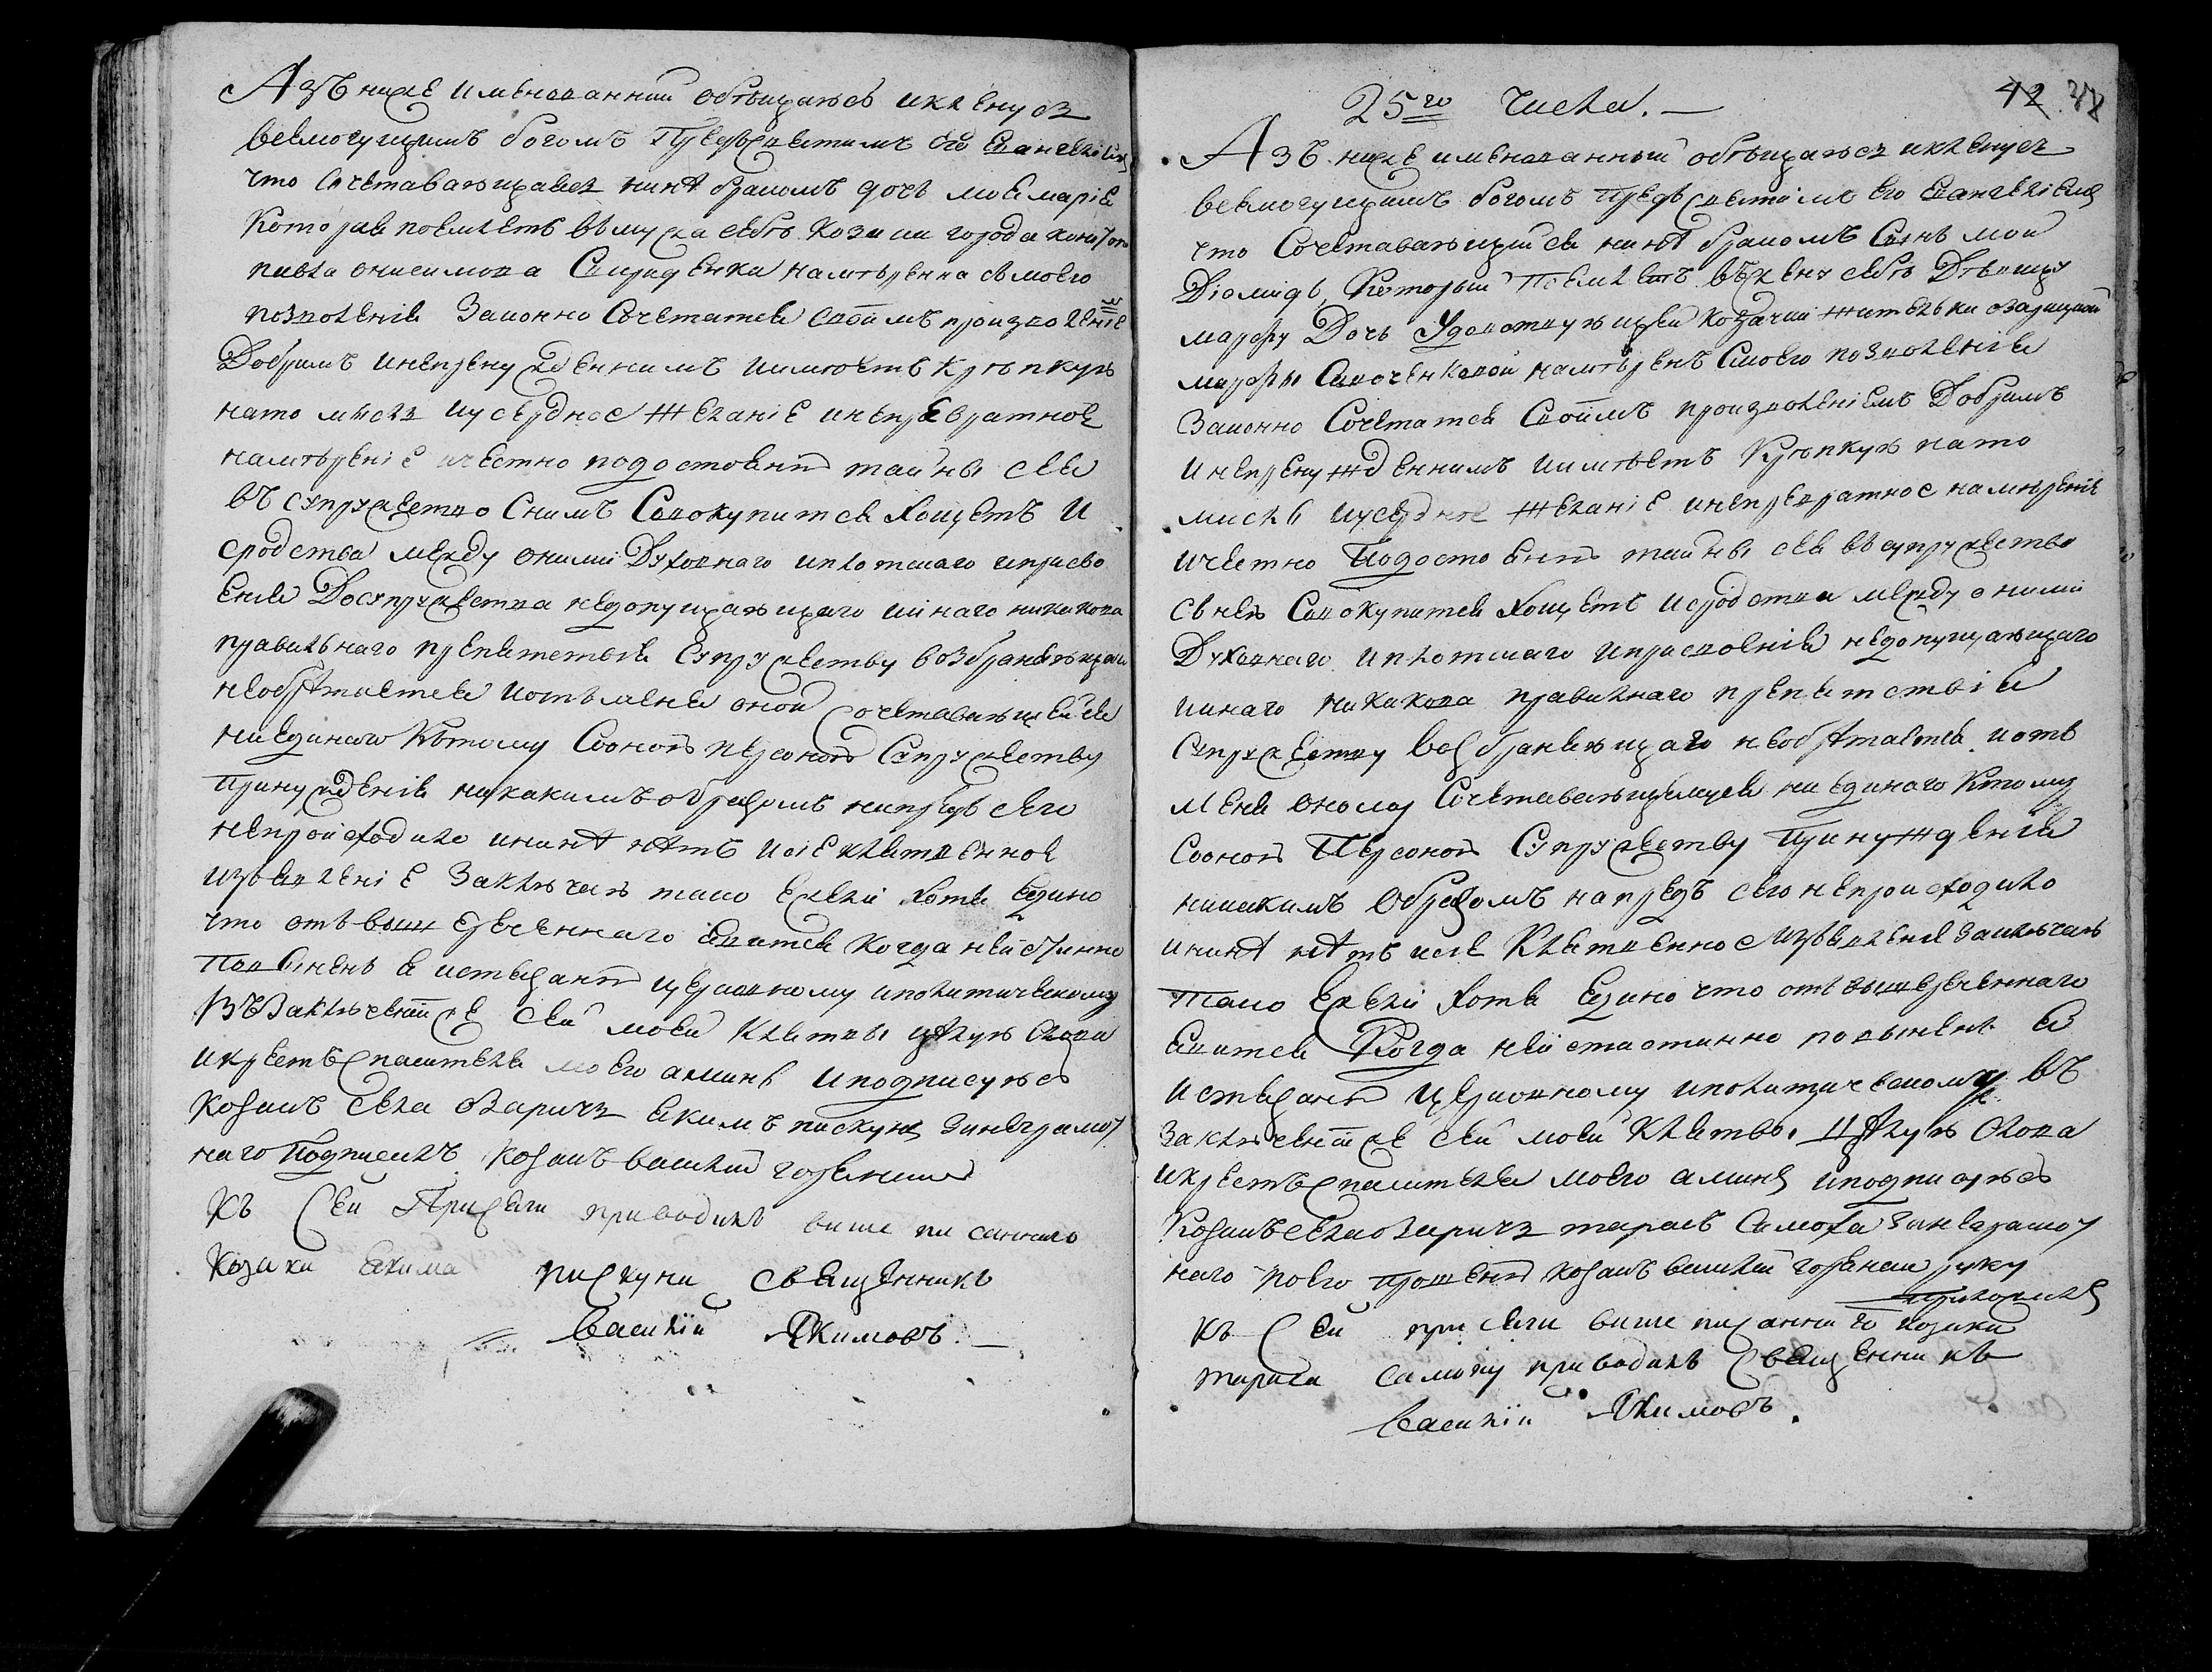 Азъ нижеименованний обѣщаюся и кленуся
всемогущимъ богомъ предъ святимъ его евангелиемъ
что сочетавающаяся нинѣ бракомъ дочь моя марія
которая поемлетъ въ мужа себѣ козака города
павла онисимова Свириденка намѣренна с моего
позволенія законно сочетатся своимъ произволеніемъ
добримъ и непренужденнимъ и имѣетъ крѣпкую
на то мисль и усердное желаніе и непревратное
намѣреніе и честно по достоянію тайны сея
въ супружество с нимъ совокупится хощетъ и
сродства между оними духовнаго и плотскаго и присво
енія до супружества недопущающаго и инаго никакова
правильнаго препятствія супружеству возбраняющаго
необрѣтается и отъ мене оной сочетавающейся
ни единаго к тому со оною персоною супружеству
принужденія никакимъ образомъ напредъ сего
непроисходило и нинѣ нѣтъ и сіе клятвенное
изъявленіе заключаю тако ежели хотя едино
что отъ вишереченнаго явится когда неистинно
повиненъ я истязанію церковному и политическому
в заключеніи же сей моей клятвы цѣлую слова
и крестъ спасителя моего аминь и подписуюсь
козакъ села озаричъ якимъ пискунъ за неграмот
наго подписалъ козакъ василій
Къ сей присяги приводилъ више писанного
козака якима пискуна священникъ
Василій Якимовъ.
42
25го числа. —
Азъ нижеименованный обѣщаюся и кленуся
всемогущимъ богомъ предъ святимъ его евангелиемъ
что сочетавающийся нинѣ бракомъ синъ мой
Діомидъ, который поемлетъ въ жену себѣ дѣвицу
марфу дочь удовствующей козачки жителки озарицкой
марфы намѣренъ с моего позволенія
законно сочетатся своимъ произволеніемъ добримъ
и непренужденнимъ и имѣетъ крѣпкую на то
мисль и усердное желаніе и непревратное намѣреніе
и честно по достоянію тайны сея въ супружество
съ нею совокупится хощетъ и сродства между оними
духовнаго и плотскаго и присвоенія недопущающаго
и инаго никакова правилнаго препятствія
супружеству возбраняющаго необрѣтается и отъ
мене оному сочетавающемуся ни единаго к тому
со оною персоною супружеству принужденія
никакимъ образомъ напредъ сего непроисходило
и нинѣ нѣтъ и сіе клятвенное изъявленіе заключаю
тако ежели хотя едино что отъ вишереченнаго
явится когда неистинно повиненъ я
истязанію церковному и политическому въ
заключеніи же сей моей клятвы цѣлую слова
и крестъ спасителя моего аминь и подписуюсь
козакъ села озаричъ тарасъ Самоха за неграмот
наго по его прошенію козакъ василій руку
приложилъ
Къ сей присяги више писанного козака
тараса самоху приводилъ священникъ
Василій Якимовъ.